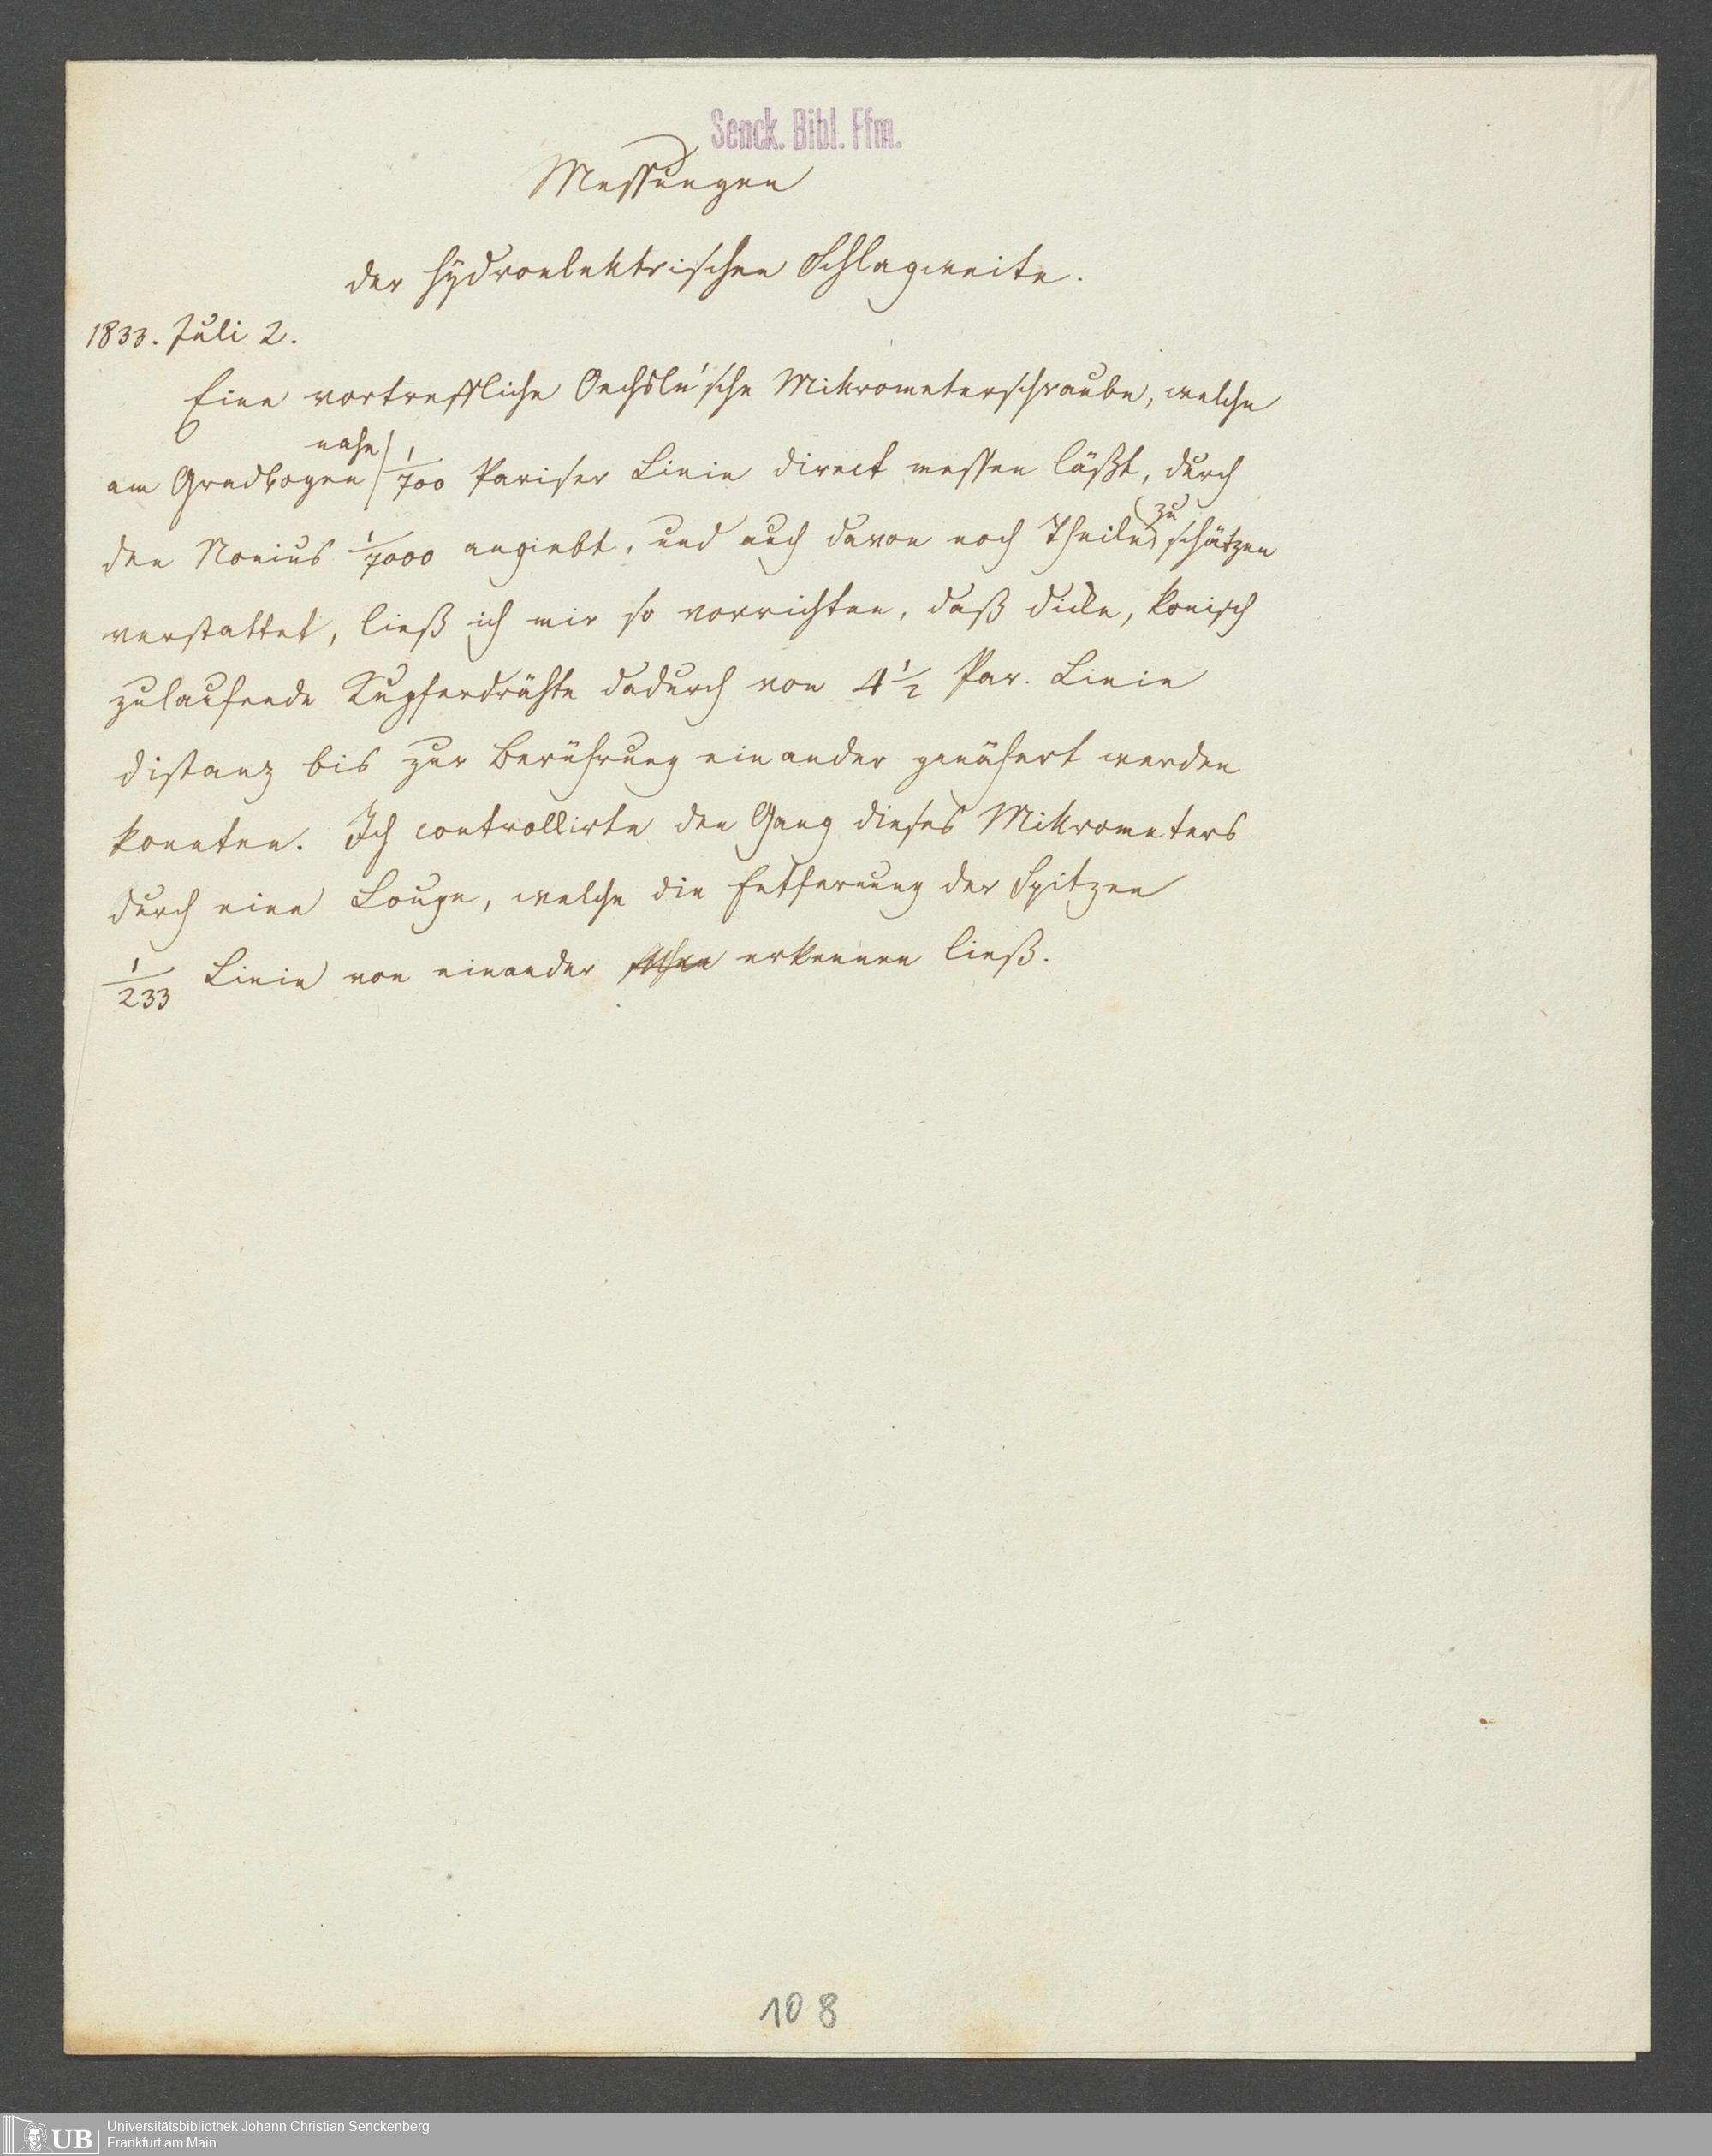 Senck. Bibl. Ffm.
Messungen
der hydroelektrischen Schlagweite.
1833. Juli 2.
Eine vortreffliche Oechsle'sche Mikrometerschraube, welche
nahe
am Gradbogen 1/700 Pariser Linie direct messen läßt, durch
zu
den Nonius 1/7000 angiebt, und auch davon noch Theile schätzen
verstattet, ließ ich mir so vorrichten, daß dicke, konisch
zulaufende Kupferdrähte dadurch von 4 1/2 Par. Linie
distanz bis zur Berührung einander genähert werden
konnten. Ich controllirte den Gang dieses Mikrometers
durch eine Loupe, welche die Entfernung der Spitzen
1/233 Linie von einander erkennen ließ.
108
UB
Universitätsbibliothek Johann Christian Senckenberg
Frankfurt am Main